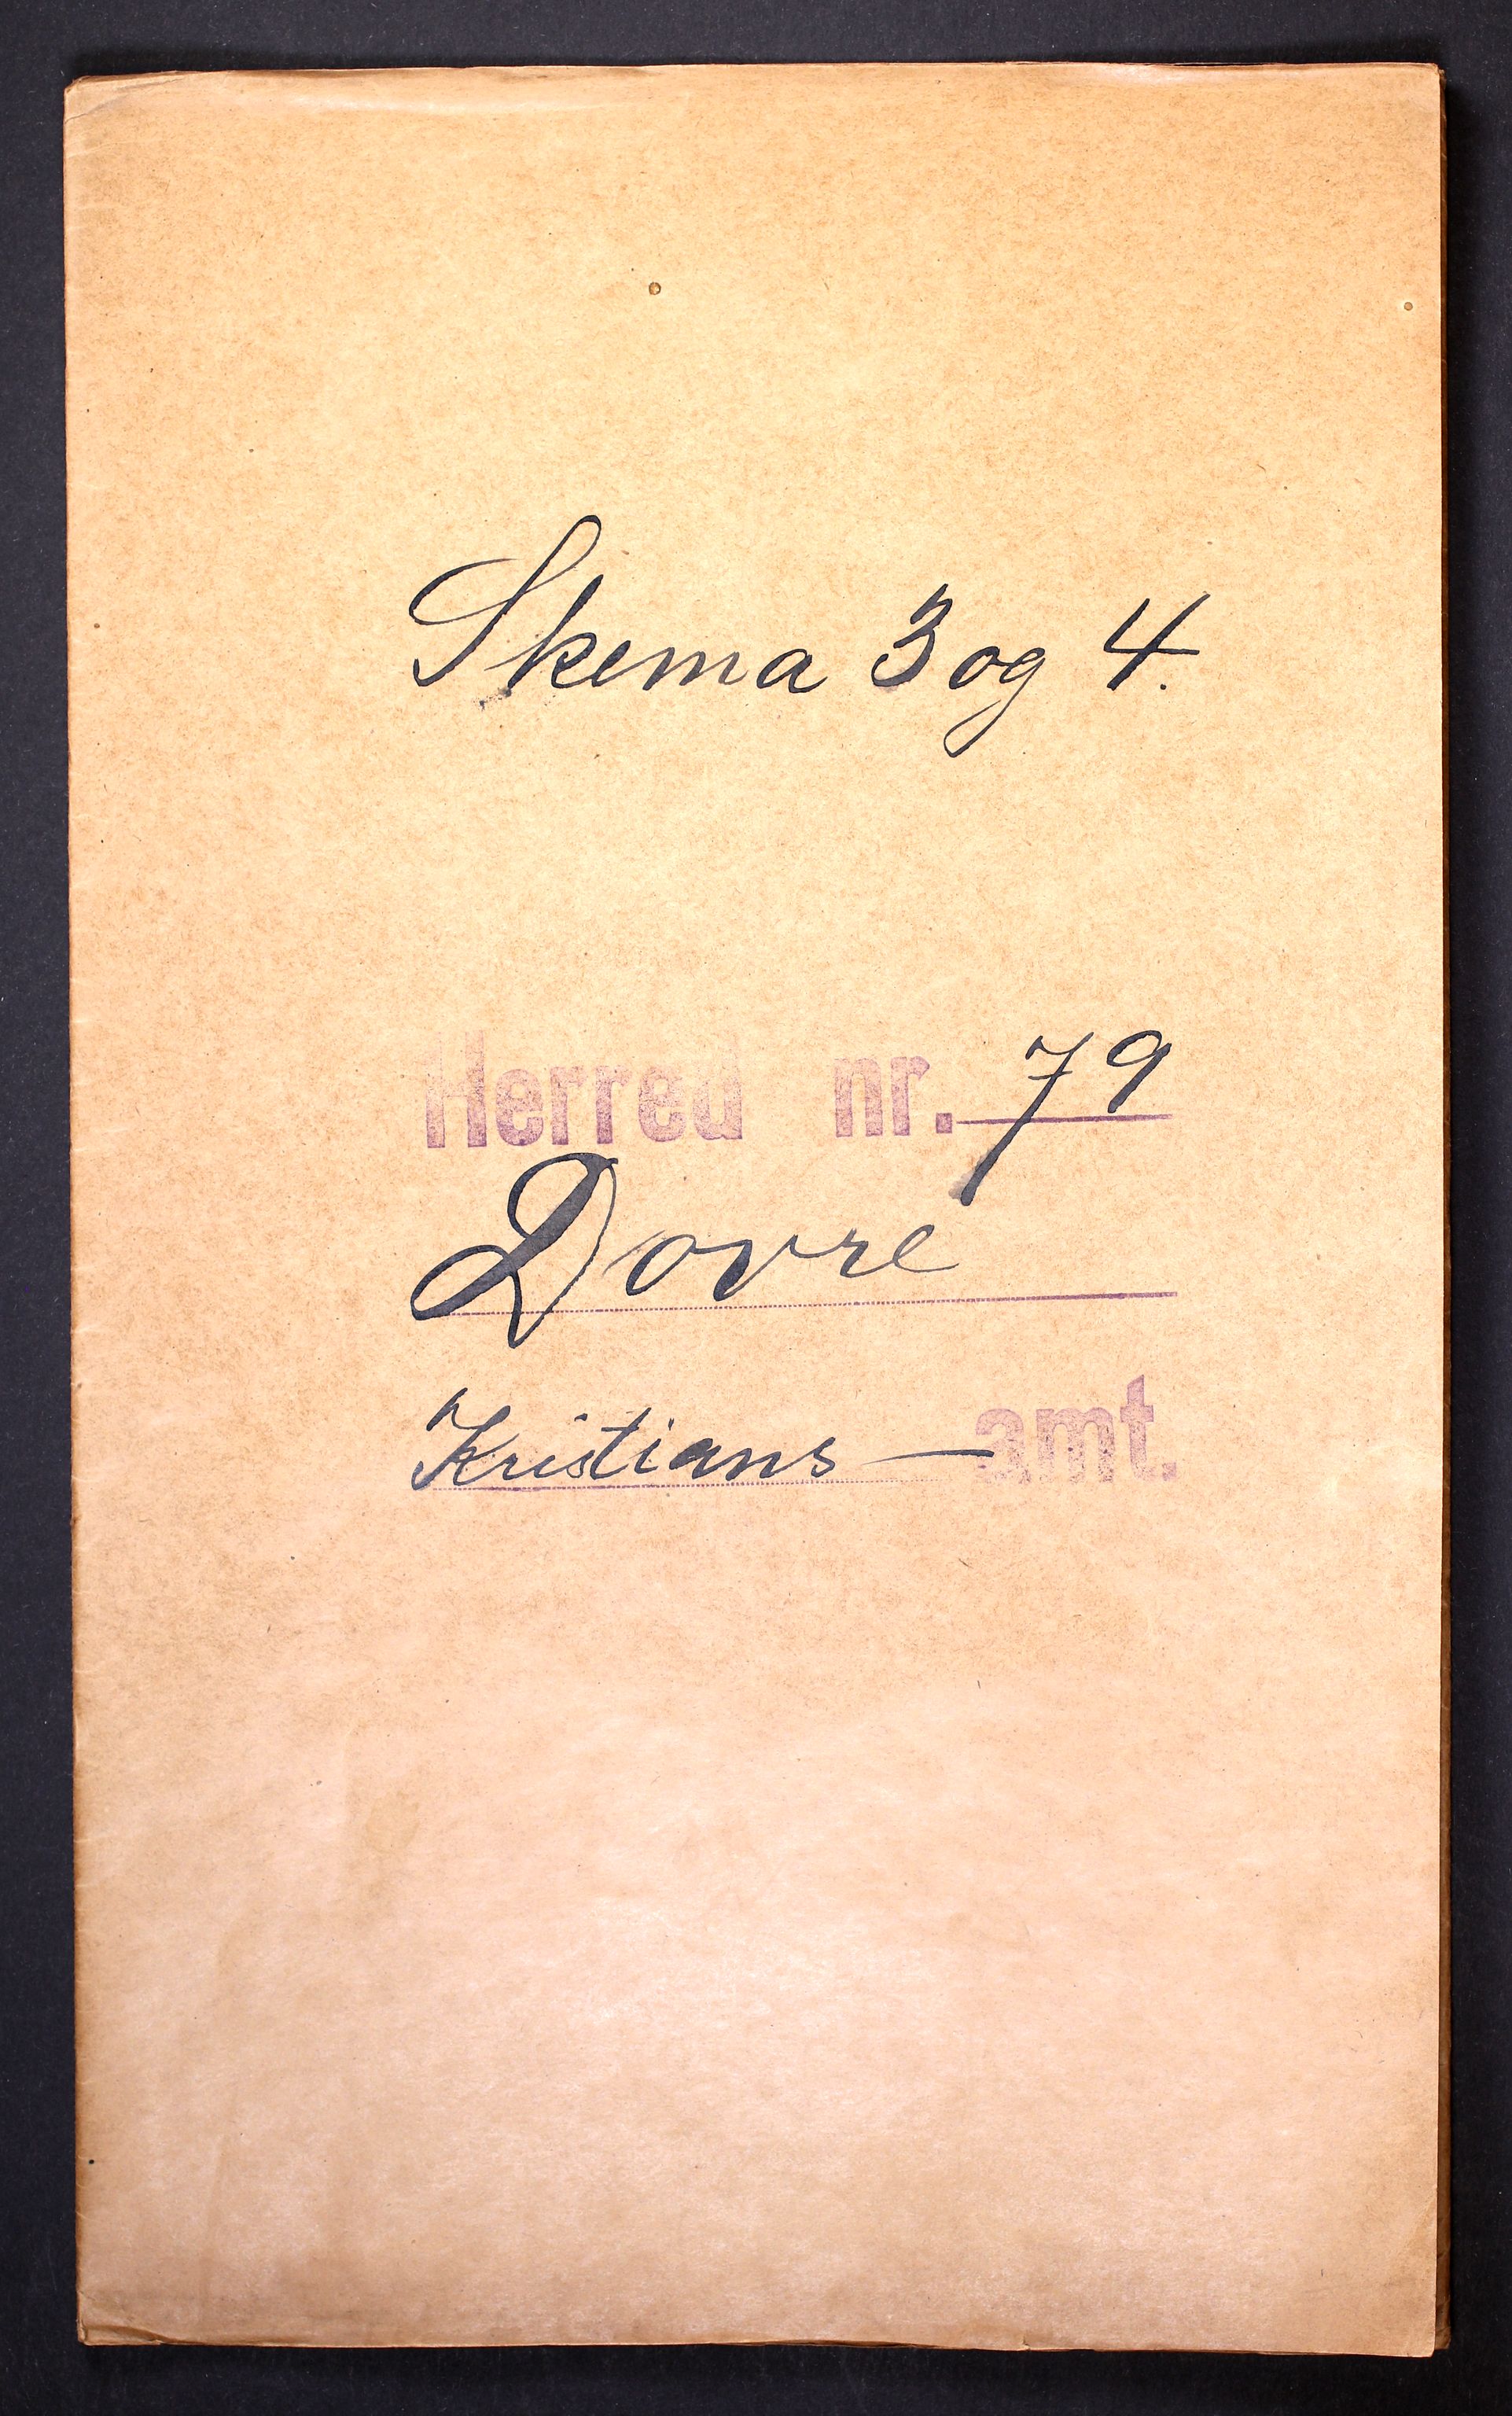 Skema 3 og 4.
Herred nr. 79
Dovre
Kristians — amt.